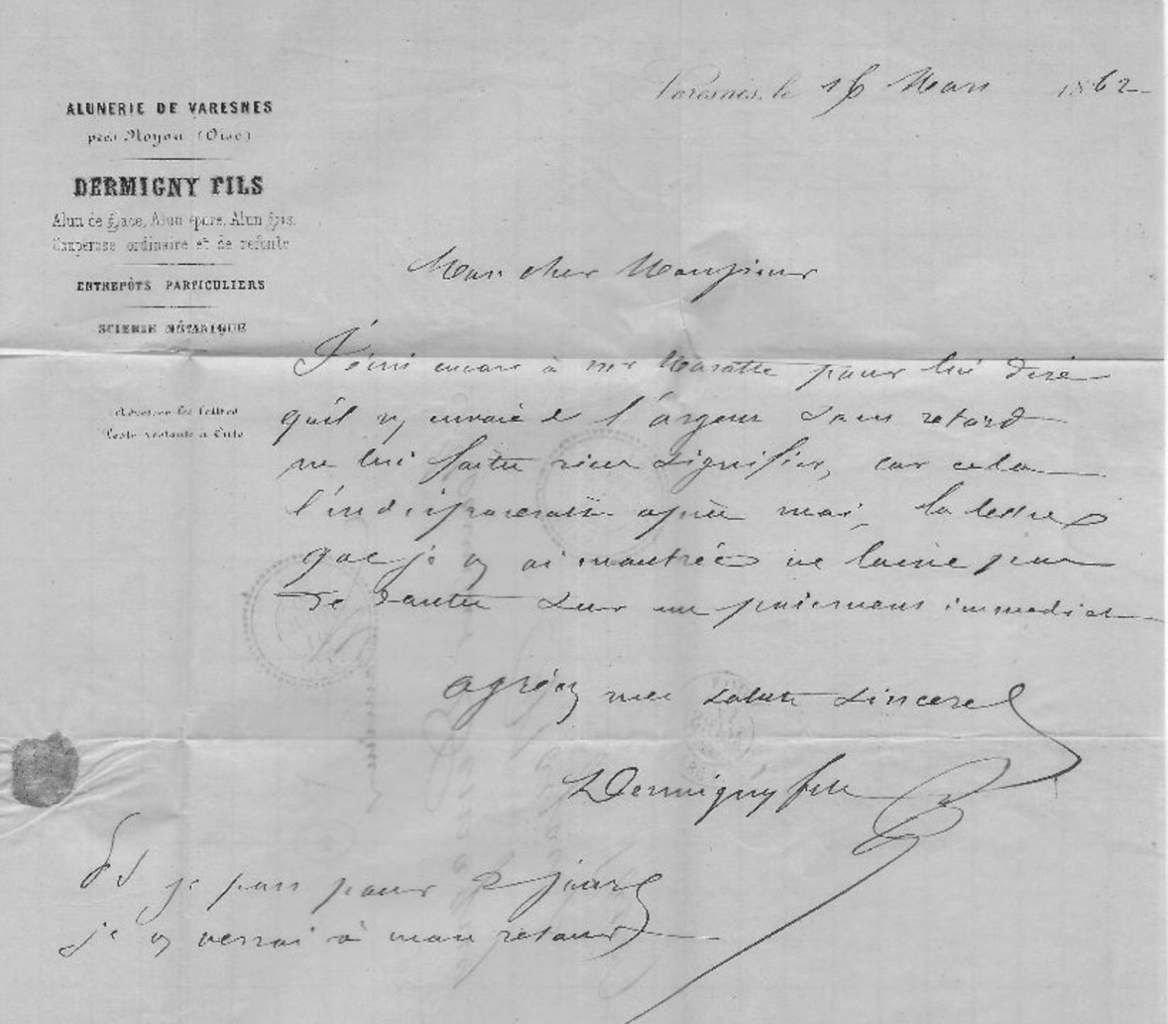 ALUNERIE DE VARESNES
près Noyon (Oise)
DERMIGNY FILS
Alun de glace, Alun épuré, Alun gris.
Couperose ordinaire et de refonte
ENTREPÔTS PARTICULIERS
SCIERIE MÉCANIQUE
Adresser les lettres
Poste restante à
Varesnes, le 16 Mars 1862
Mon cher Monsieur
J'écris encore à mr pour lui dire
qu'il v envoie de l'argent sans retard
ne lui faites rien signifier, car cela
l'indisposerait après moi, la lettre
que je v ai montrée ne laisse pas
de doutes sur un paiement immediat
agréez mes saluts sinceres
Dermigny fils
PS je pars pour 2 jours
je v verrai à mon retour